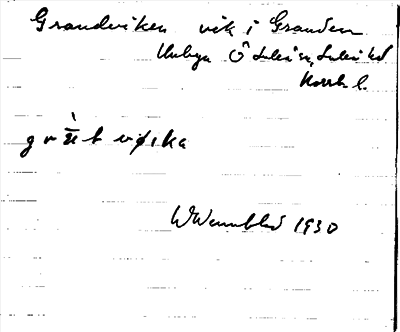 Grandviken vik i Granden
Unbyn Ö Luleå sn, Luleå hd
Norrb l.
WWennblad 1930